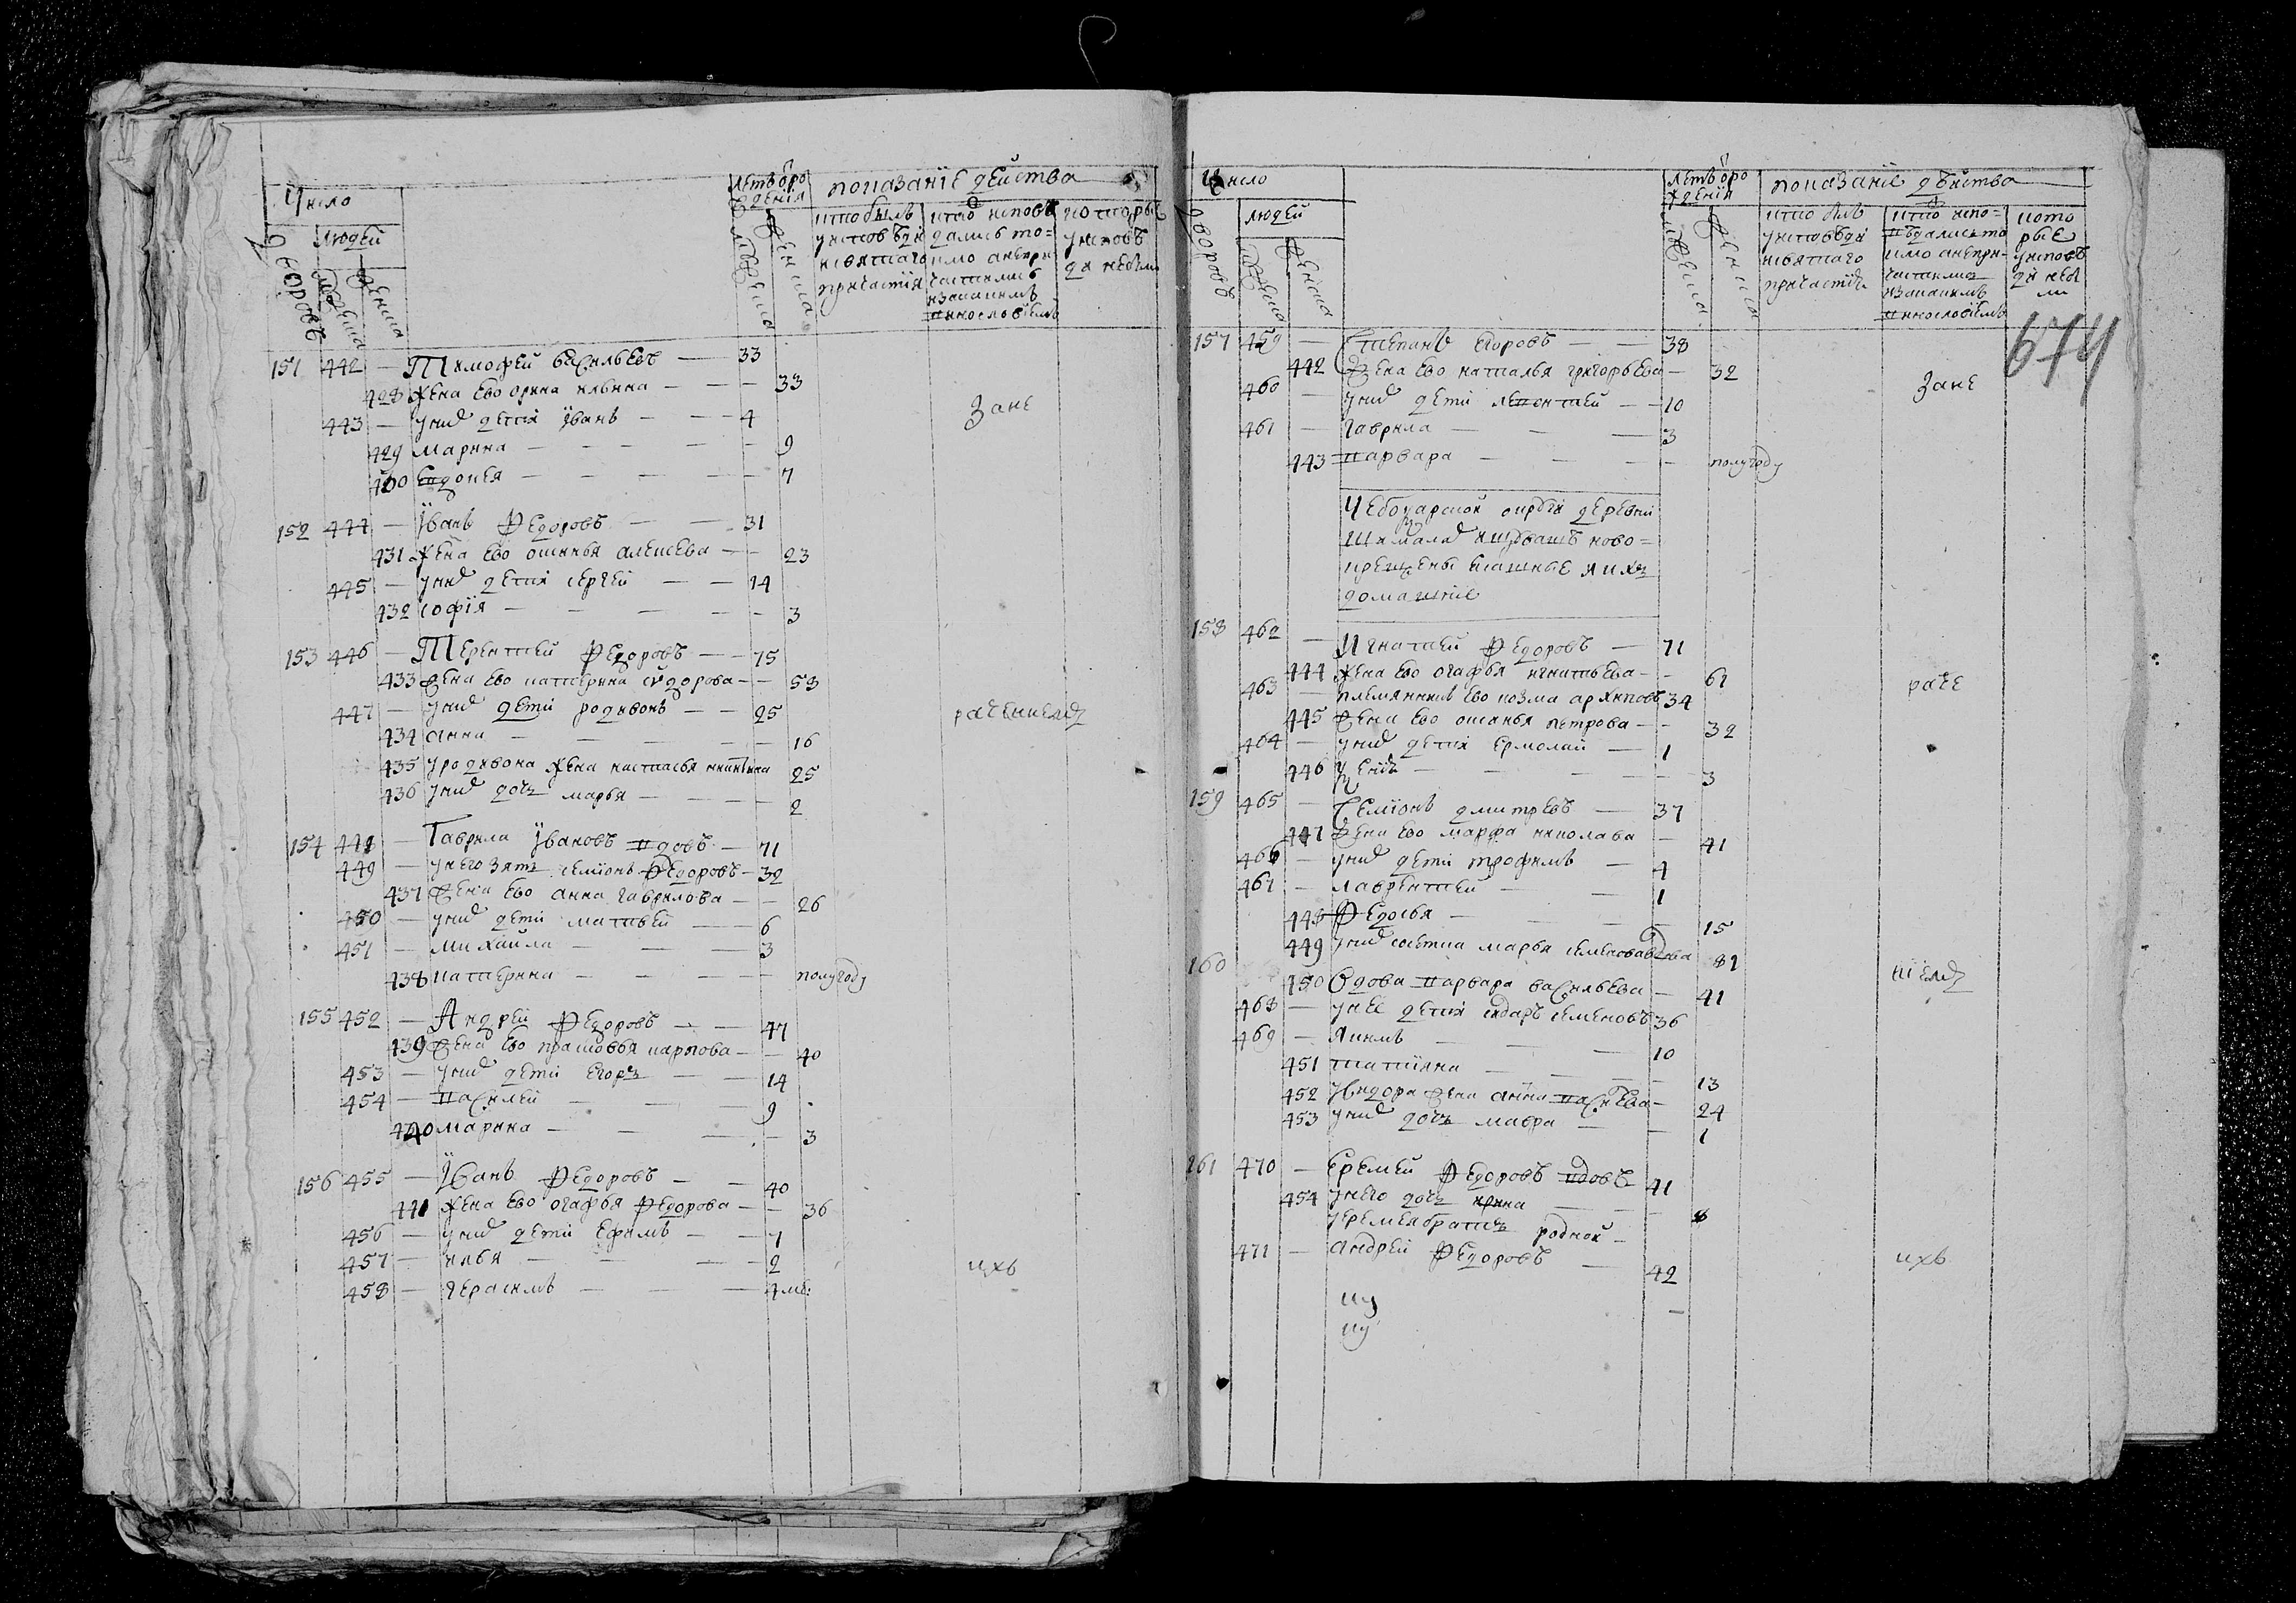 Число
Дворовъ
людей
мужеска
женска
летъ о рождения
мужеска
женска
показанїе действа
кто былъ у исповѣди и святаго причастїя
кто исповѣдались токмо а не причастились и за какимъ винословїемъ
которые у исповѣди небыли
151 442 — Тимофей василъевъ — 33
428 жена ево орина илъина — 33
443 — у них дети їванъ — 4
429 марина — 9
430 евдокея — 7
зане
152 444 — Їванъ Федоровъ — 31
431 жена ево оксинья алексеева — 23
445 — у них дети сергей — 14
432 софїя — 3
153 446 — Терентей Федоровъ — 75
433 жена ево катерина сидорова — 53
447 — у них дети родивонъ — 25
434 анна — 16
435 у родивона жена настасья никитина 25
436 у них дочь марья — 2
раченiемъ
154 448 — Гаврила Ївановъ вдовъ — 71
449 — у него зять семїонъ Федоровъ — 32
437 жена ево анна гаврилова — 26
450 — у них дети матвей — 6
451 — михайла — 3
438 катерина — полугоду
155 452 — Андрей Федоровъ — 47
439 жена ево прасковья карпова — 40
453 — у них дети егоръ — 14
454 — василей — 9
440 марина — 3
156 455 — Їванъ Федоровъ — 40
441 жена ево огафья Федорова — 36
456 — у них дети ефимъ — 7
457 — илья — 2
458 — герасимъ — 4 ме:
ихъ
Число
Дворовъ
людей
мужеска
женска
летъ о рождения
мужеска
женска
показанїе дѣйства
кто былъ у исповѣди и святаго причастїя
кто исповѣдались токмо а не причастились и за какимъ винословїемъ
которые у исповѣди небыли
674
157 459 — Степанъ егоровъ — 38
442 жена ево наталья григорьева — 32
460 — у них дети леонтей — 10
461 — гаврила — 3
443 варвара — полугоду
зане
Чебоксарской округи деревни
шимало и чювашъ ново=
крещены ясашные и ихъ
домашние
158 462 — Игнатей Федоровъ — 71
444 жена ево огафья игнатьева — 61
463 — племянникъ ево козма архиповъ 34
445 жена ево оксинья петрова — 32
464 — у них дети ермолай — 1
446 — 3
раче
159 465 — Семїонъ дмитревъ — 37
447 жена ево марфа николава — 41
466 — у них дети трофимъ — 4
467 — лаврентей — 1
448 Федосья — 15
449 марья семенова вдова 81
160 450 Вдова варвара василъева — 41
468 — у нее дети сидаръ семеновъ 36
469 — якимъ — 10
451 татїяна — 13
452 у сидора жена анна — 24
453 у них дочь мавра — 1
нїемъ
161 470 — Еремей Федоровъ вдовъ 41
454 у него дочь ирина — 8
у еремея братъ родной —
471 — андрей Федоровъ — 42
ихъ